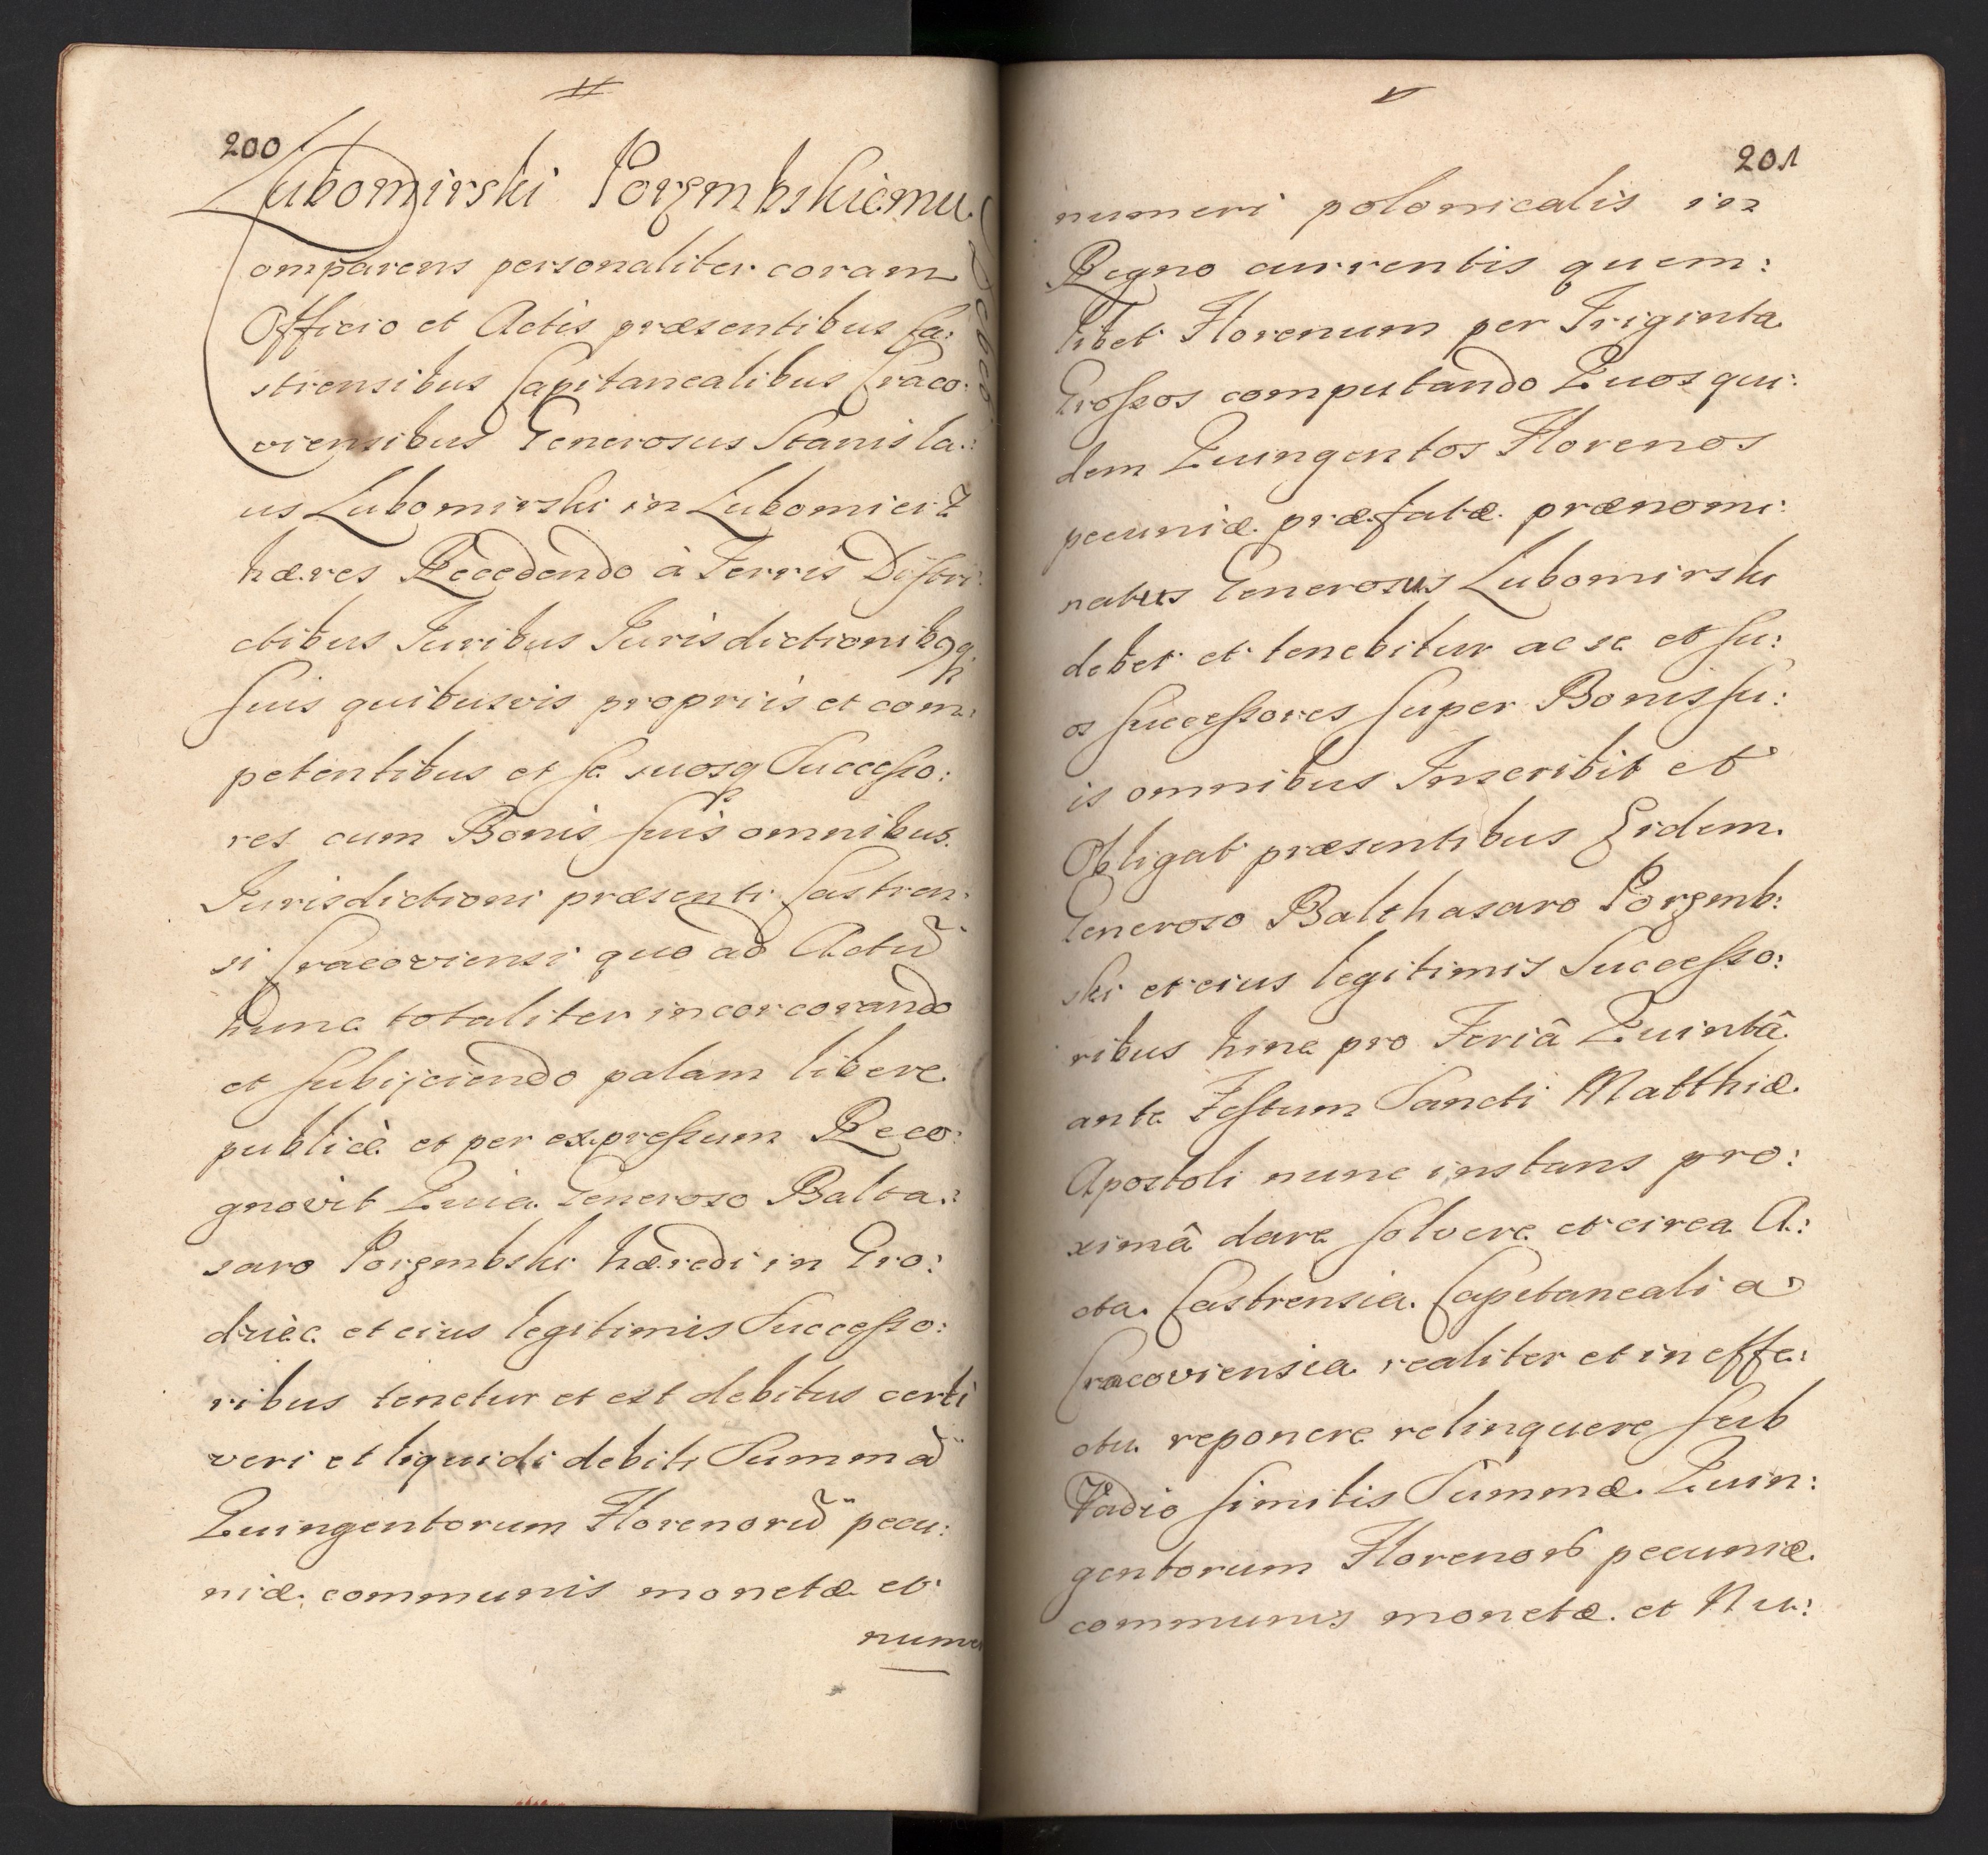 200
Lubomirski Porzmbskiemu
Comparens personaliter coram
Officio et Actis præsentibus Ca:
strensibus Capitanealibus Craco:
viensibus Generosus Stanisla:
us Lubomirski in Lubomierz
hæres Recedendo à Terris Distri:
ctibus Juribus Jurisdictionibqq
suis quibusvis propriis et com:
petentibus et se suosq Successo:
res cum Bonis suis omnibus
Jurisdictioni præsenti Castren:
si Cracoviensi quo ad Actũ
hunc totaliter incorcorando
et subijciendo palam libere
publicè et per expressum Reco:
gnovit Quia Generoso Balta:
saro Porzmbski hæredi in Gro:
dziec et eius legitimis Successo:
ribus tenetur et est debitus certi
veri et liquidi debiti Summã
Quingentorum Florenorũ pecu:
niæ communis monetæ et
nume
201
numeri polonicalis in
Regno currentis quem:
libet Florenum per Triginta
Grossos computando Quos qui:
dem Quingentos Florenos
pecuniæ præfatæ prænomi:
natus Generosus Lubomirski
debet et tenebitur ac se et su:
os successores super Bonis su:
is omnibus Inscribit et
Obligat præsentibus Eidem
Generoso Balthasaro Porzmb:
ski et eius legitimis Successo:
ribus hinc pro Feriâ Quintâ
ante Festum Sancti Matthiæ
Apostoli nunc instans pro:
ximâ dare solvere et circa A:
cta Castrensia Capitaneali a
Cracoviensia realiter et in effe:
ctu reponere relinquere sub
Vadio similis Summæ Quin:
gentorum Florenor pecuniæ
communis monetæ et Nu: